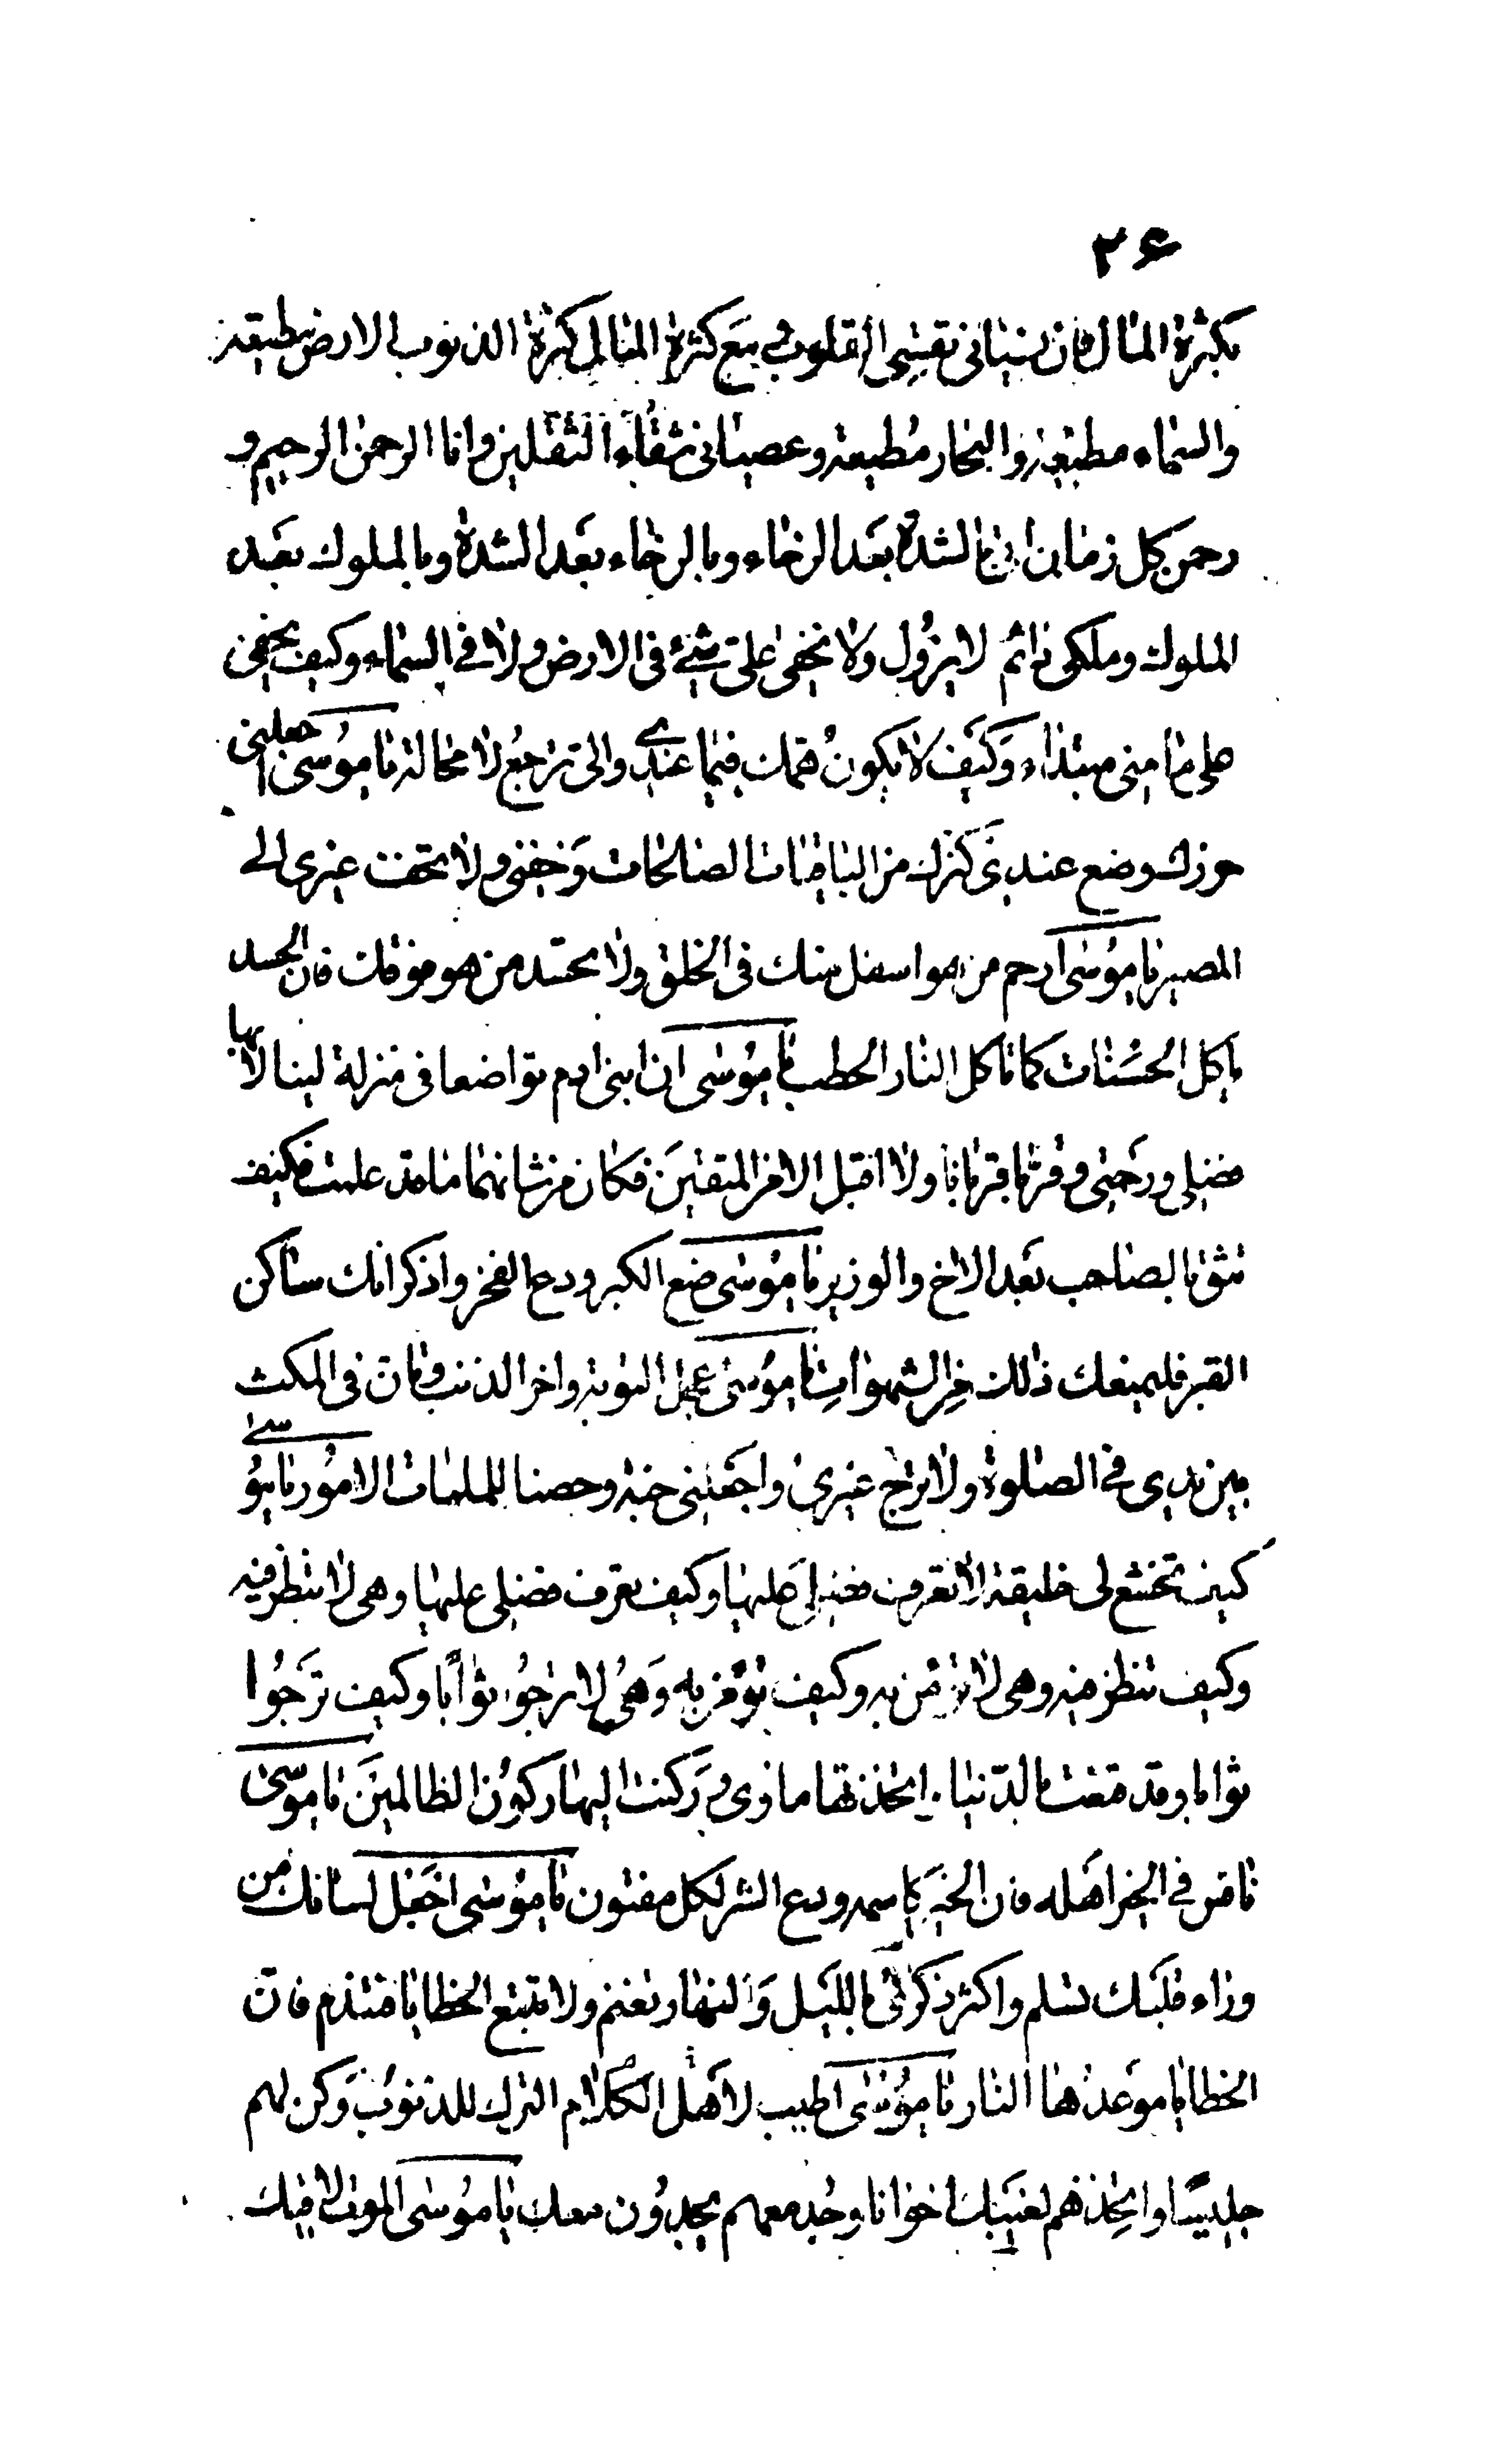 ۲۶
بكثرة المال فان نسياني تقسي القلوب و مع كثرة المال كثرة الذنوب الارض مطيعة
والسماء مطيعة والبحار مطيعة وعصياني شقاء الثقلين وانا الرحمن الرحيم و
رحمن كل زمان اتي بالشدة بعد الرخاء وبالرخاء بعد الشدة وبالملوك بعد
الملوك وملكي دائم لا يزول ولا يخفى على شئ في الارض ولا في السماء وكيف يخفى
على ما مني مبتداه وكيف لا يكون همك فيما عندي والى ترجع لا محالة يا موسى اجعلني
حرزك وضع عندي كنزك من الباقيات الصالحات وخفني ولا تخف غيري الى
المصير يا موسى ارحم من هو اسفل منك في الخلق ولا تحسد من هو فوقك فان الحسد
ياكل الحسنات كما تاكل النار الحطب يا موسى ان ابني ادم تواضعا في منزلة لينالا بها
فضلي ورحمتي وقربا قربانا ولا اقبل الا من المتقين فكان من شانهما ما قد علمت فكيف
تثق بالصاحب بعد الاخ والوزير يا موسى ضع الكبر ودع الفخر واذكر انك ساكن
القبر فليمنعك ذلك من الشهوات يا موسى عجل التوبة واخر الذنب وتان في المكث
بين يدي في الصلوة ولا ترج غيري واجعلني جنة وحصنا للملمات الامور يا موسى
كيف تخشع لي خليقة لا تعرف فضلي عليها وكيف تعرف فضلي عليها وهي لا تنظر فيه
وكيف تنظر فيه وهي لا تؤمن به وكيف تؤمن به وهي لا ترجوا ثوابا وكيف ترجوا
ثوابا وقد قنعت بالدنيا واتخذتها ماوى وركنت اليها ركون الظالمين يا موسى
نافس في الخير اهله فان الخير كاسمه ودع الشر لكل مفتون يا موسى اجعل لسانك من
وراء قلبك تسلم واكثر ذكري بالليل والنهار تغنم ولا تتبع الخطايا فتندم فان
الخطايا موعدها النار يا موسى اطيب لاهل الكلام الترك للذنوب وكن لهم
جليسا واتخذهم لغيبك اخوانا وجد معهم يجدون معك يا موسى الموت لاقيك